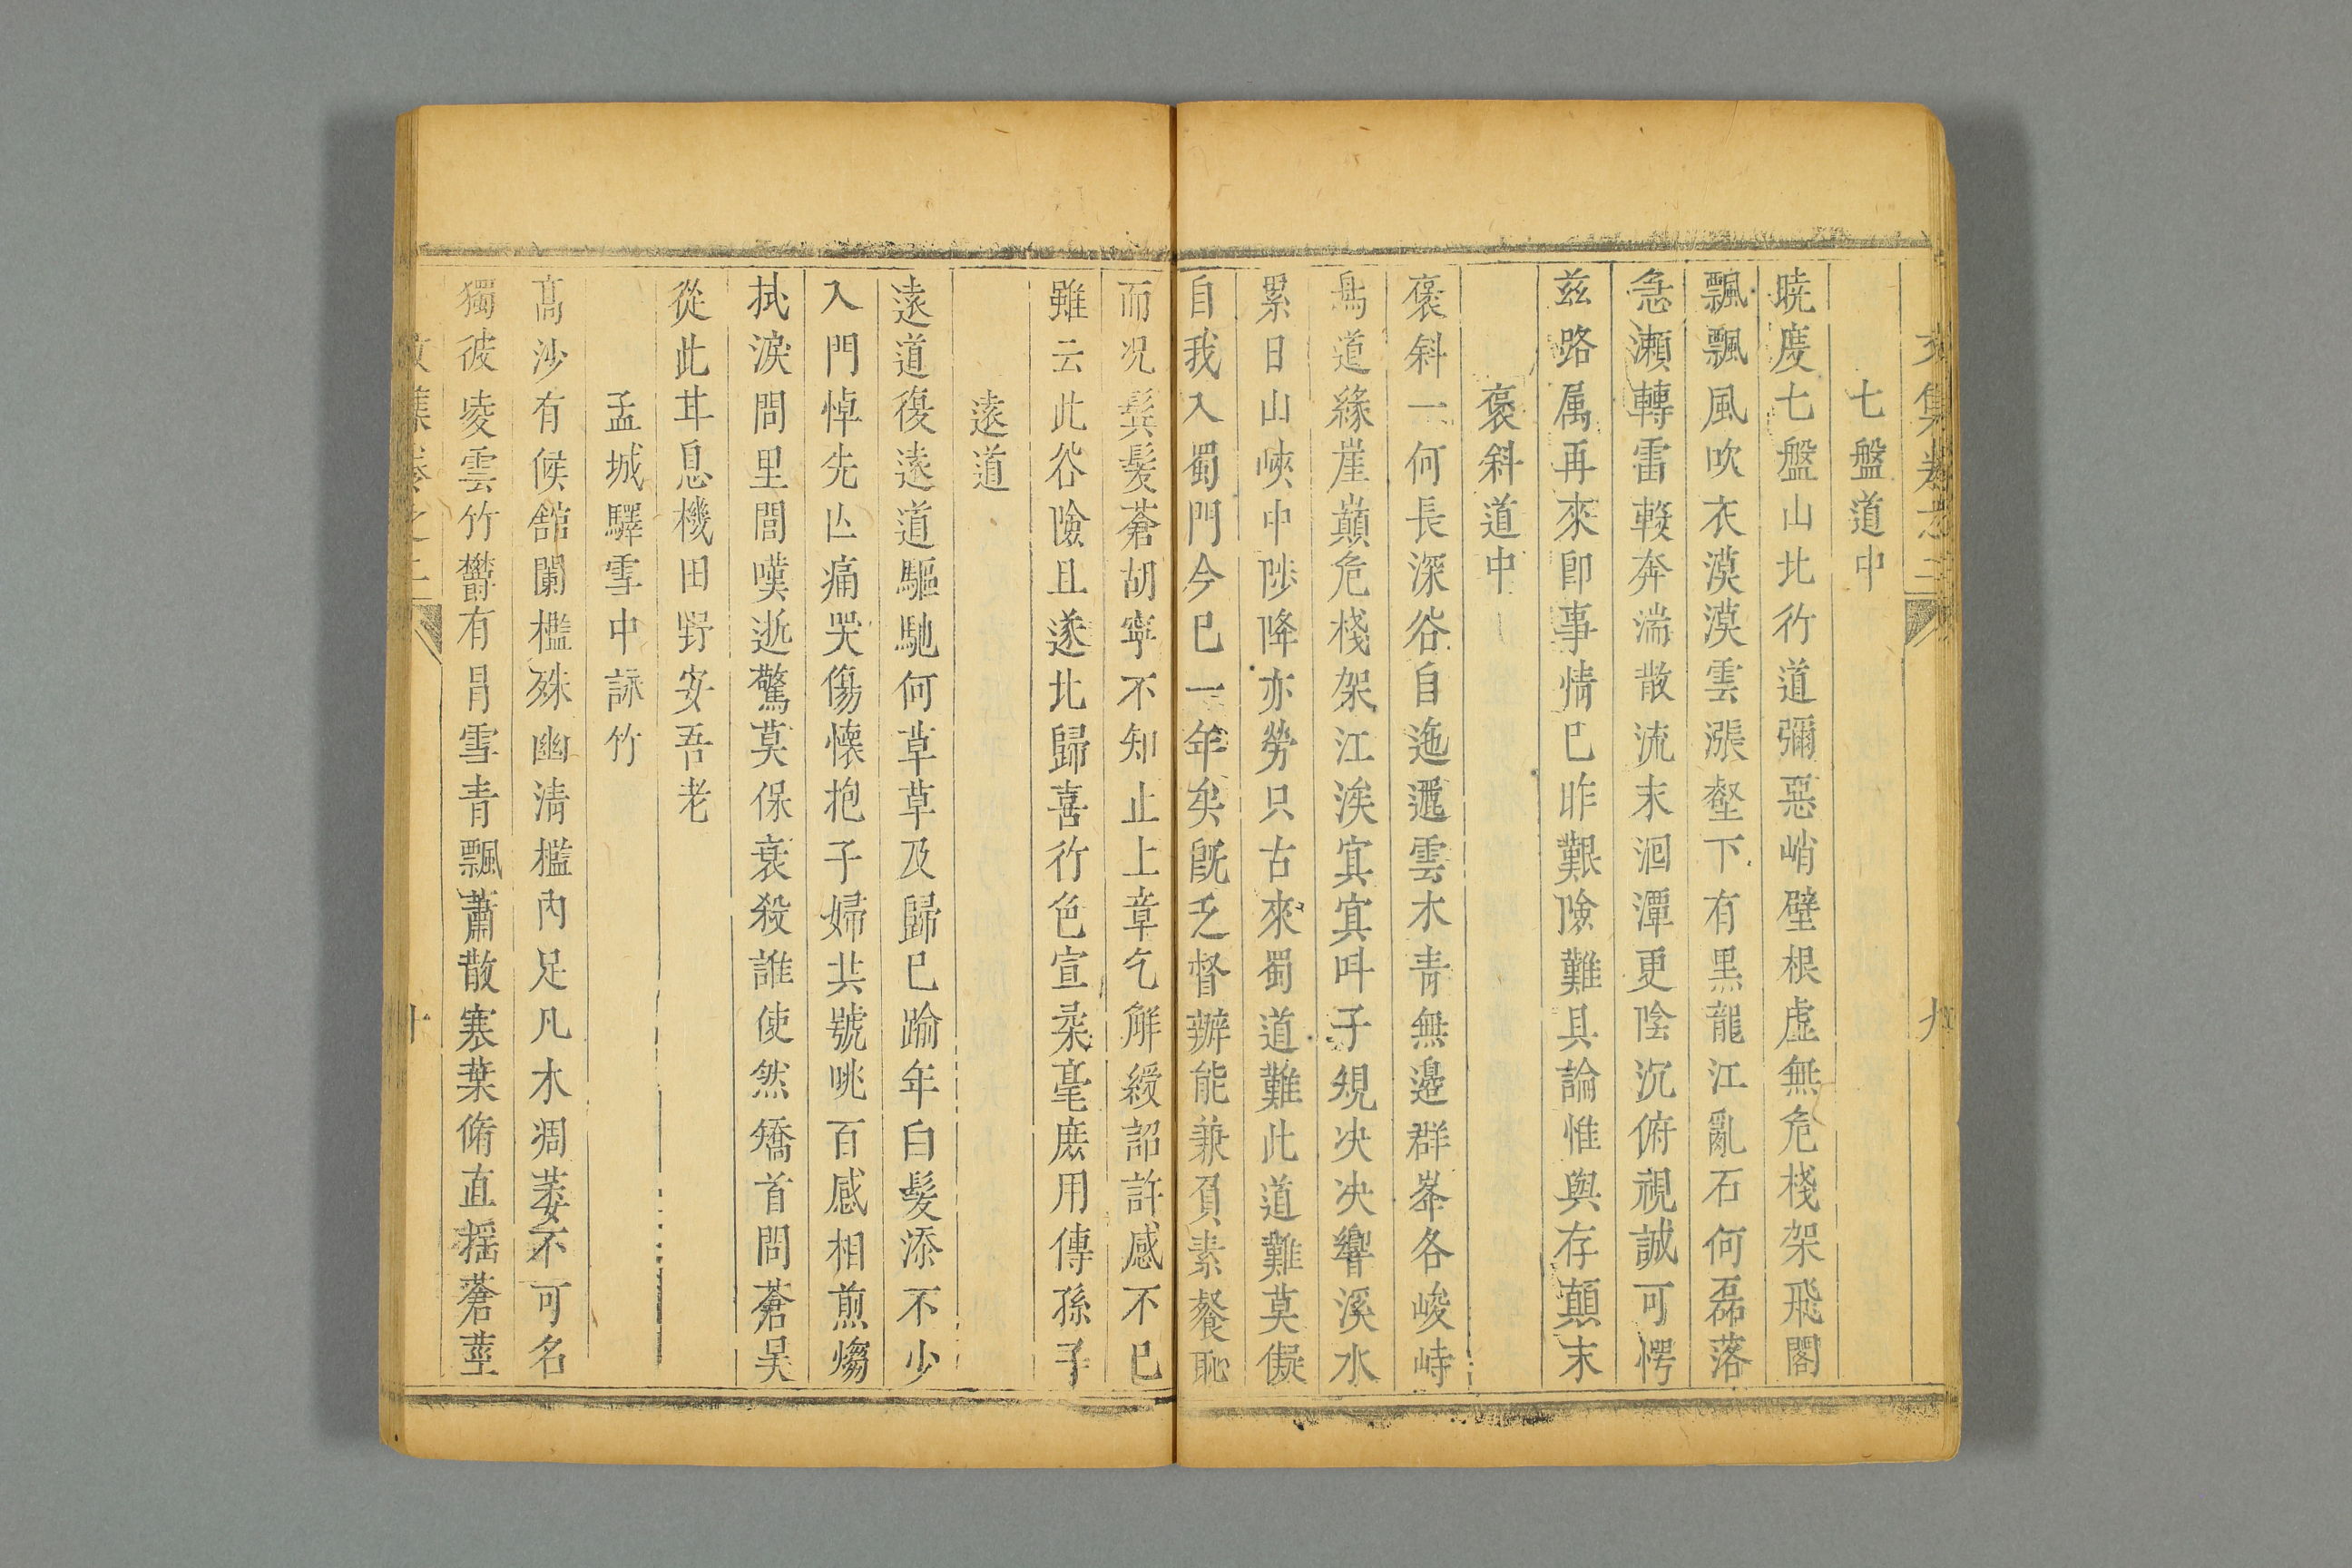 文集卷之二 九
七盤道中
曉度七盤山北行道彌惡峭壁根虛無危棧架飛閣
飄飄風吹衣漠漠雲漲壑下有黑龍江亂石何磊落
急瀨轉雷輥奔湍散流末洄潭更陰沉俯視誠可愕
茲路属再來卽事情已昨艱險難具論惟與存顛末
褒斜道中
褒斜一何長深谷自迤邐雲木青無邊群峯各峻峙
鳥道緣崖巔危棧架江涘寘寘呌子規决决響溪水
累日山峽中陟降亦勞只古來蜀道難此道難莫儗
自我入蜀門今巳一年矣旣乏督辦能兼負素餐恥
而况鬂髮蒼胡寧不知止上章乞解綬詔許感不已
雖云此谷險且遂北歸喜行色宣柔毫庶用傳孫子
遠道
遠道復遠道驅馳何草草及歸巳踰年白髮添不少
入門悼先亾痛哭傷懷抱子婦共號咷百感相煎燐
拭淚問里閭嘆逝驚莫保衰殺誰使然矯首問蒼昊
從此甘息機田野安吾老
孟城驛雪中詠竹
髙沙有候舘闌檻殊幽清檻內足凡木凋萎不可名
獨彼凌雲竹欝有冐雪青飄蕭散寒葉脩直揺蒼莖
文集卷之二 十